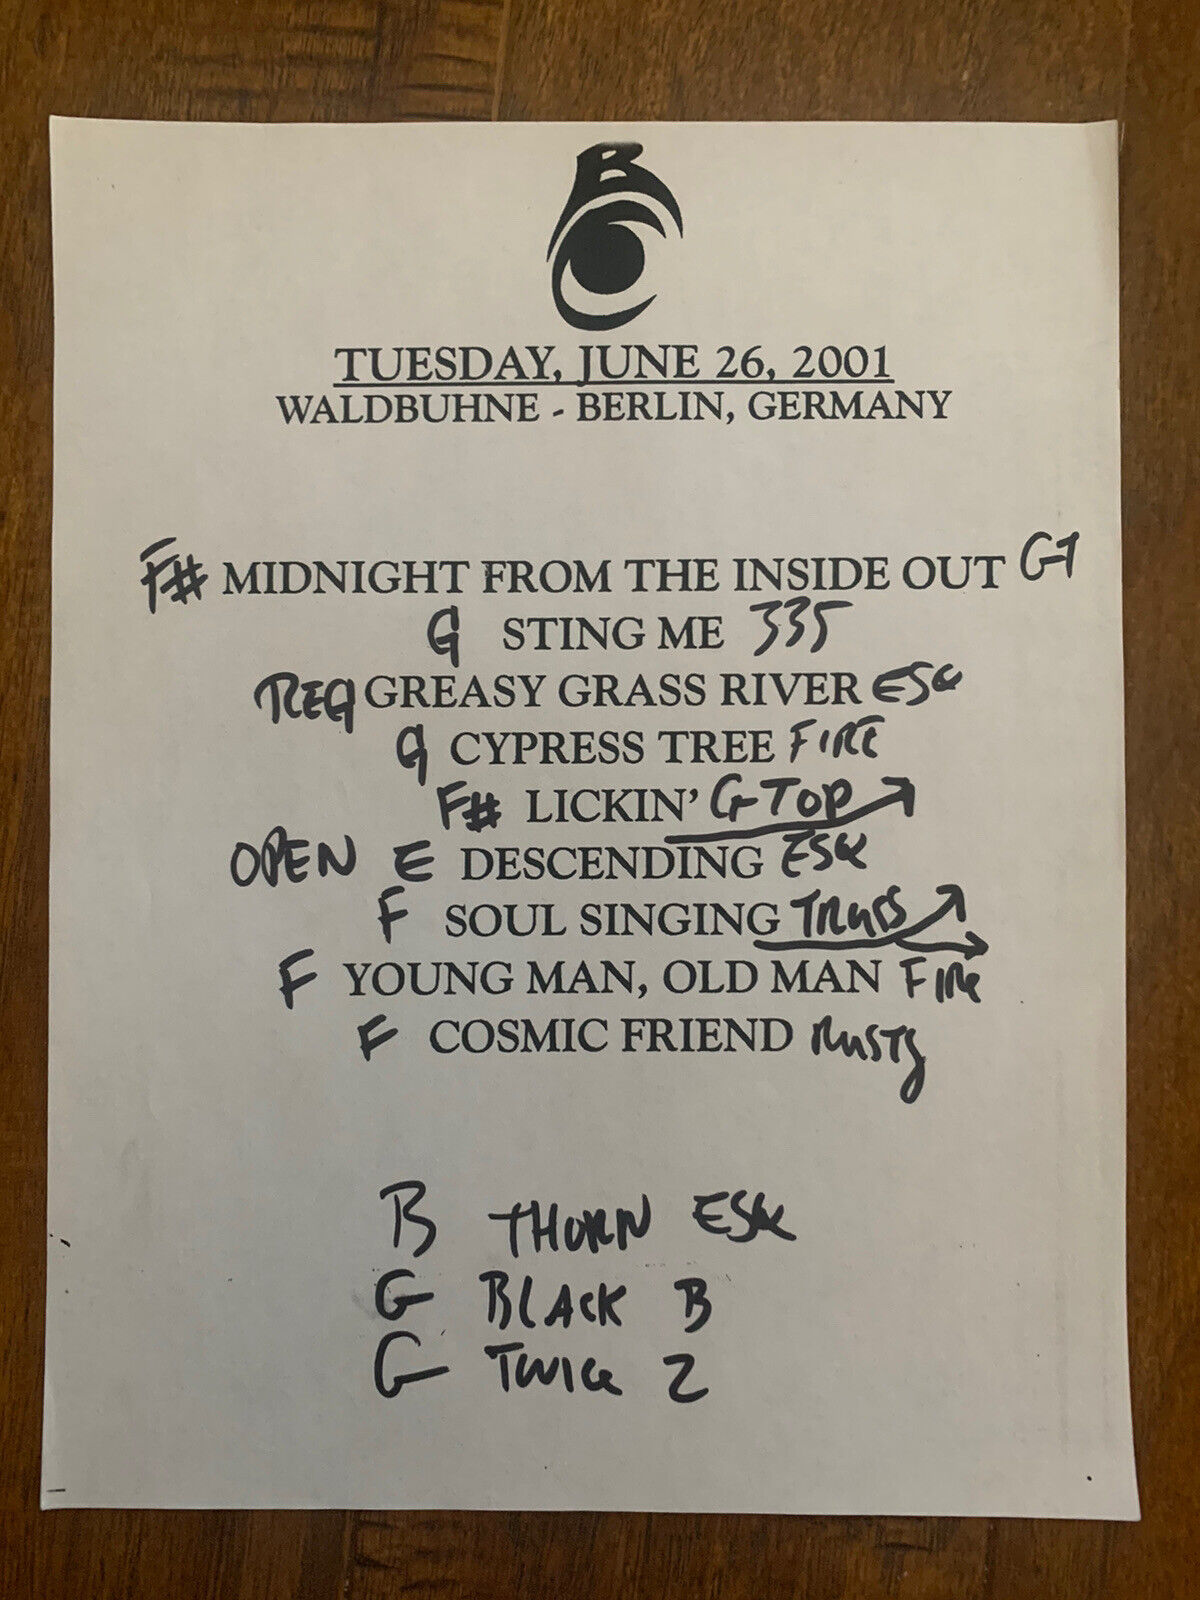 B
TUESDAY, JUNE 26, 2001
WALDBUHNE - BERLIN, GERMANY
F# MIDNIGHT FROM THE INSIDE OUT GT
G STING ME 335
REG GREASY GRASS RIVER ESQ
G CYPRESS TREE FIRE
F# LICKIN' G TOP
OPEN E DESCENDING ESQ
F SOUL SINGING TRUSS
F YOUNG MAN, OLD MAN FIRE
F COSMIC FRIEND RUSTY
B THORN ESQ
G BLACK B
G TWICE Z